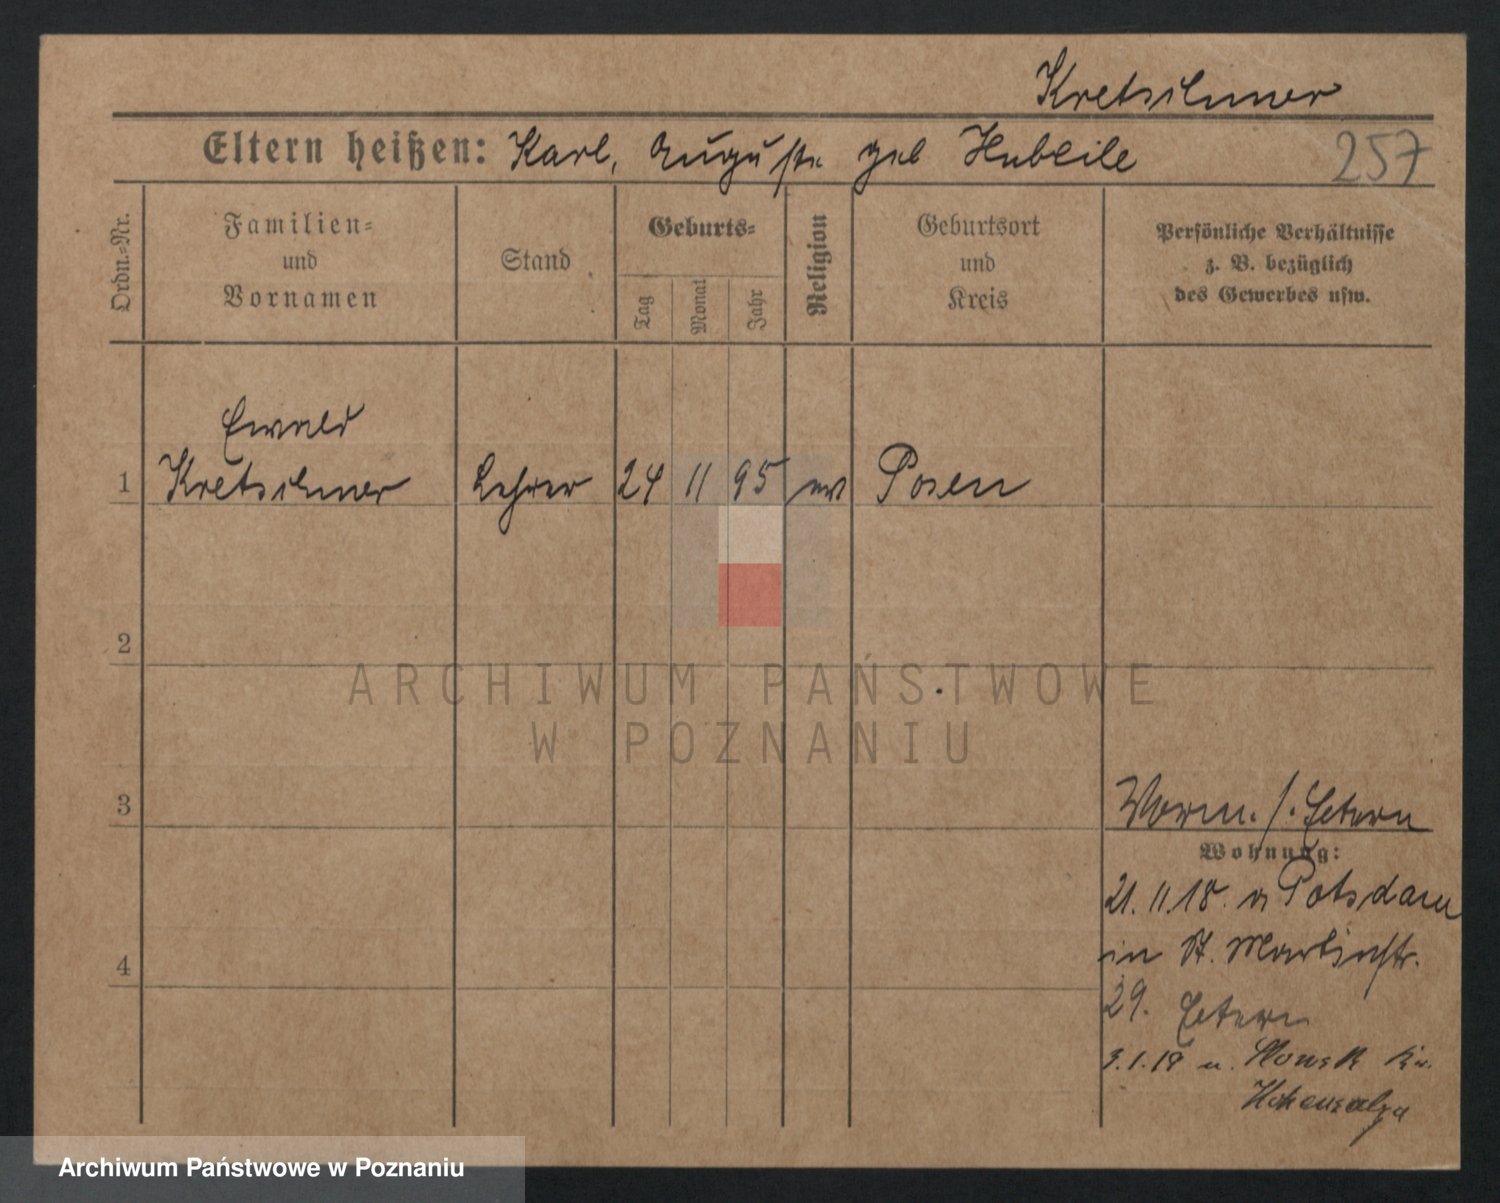 Kretschmer
Eltern heißen: Karl, Auguste geb
257
Ordn.-Nr.
Familien-
und
Vornamen
Stand
Geburts-
Tag
Monat
Jahr
Religion
Geburtsort
und
Kreis
Persönliche Verhältnisse
z. B. bezüglich
des Gewerbes usw.
Ewald
1 Kretschmer Lehrer 24 11 95 ev Posen
2
ARCHIWUM PAŃSTWOWE
W POZNANIU
3
Vorm. /. Eltern
Wohnung:
21. 11. 18. v Potsdam
in St. Martinstr.
4
29. Eltern
3.1.19 n. Slonsk Kr.
Hohensalza
Archiwum Państwowe w Poznaniu